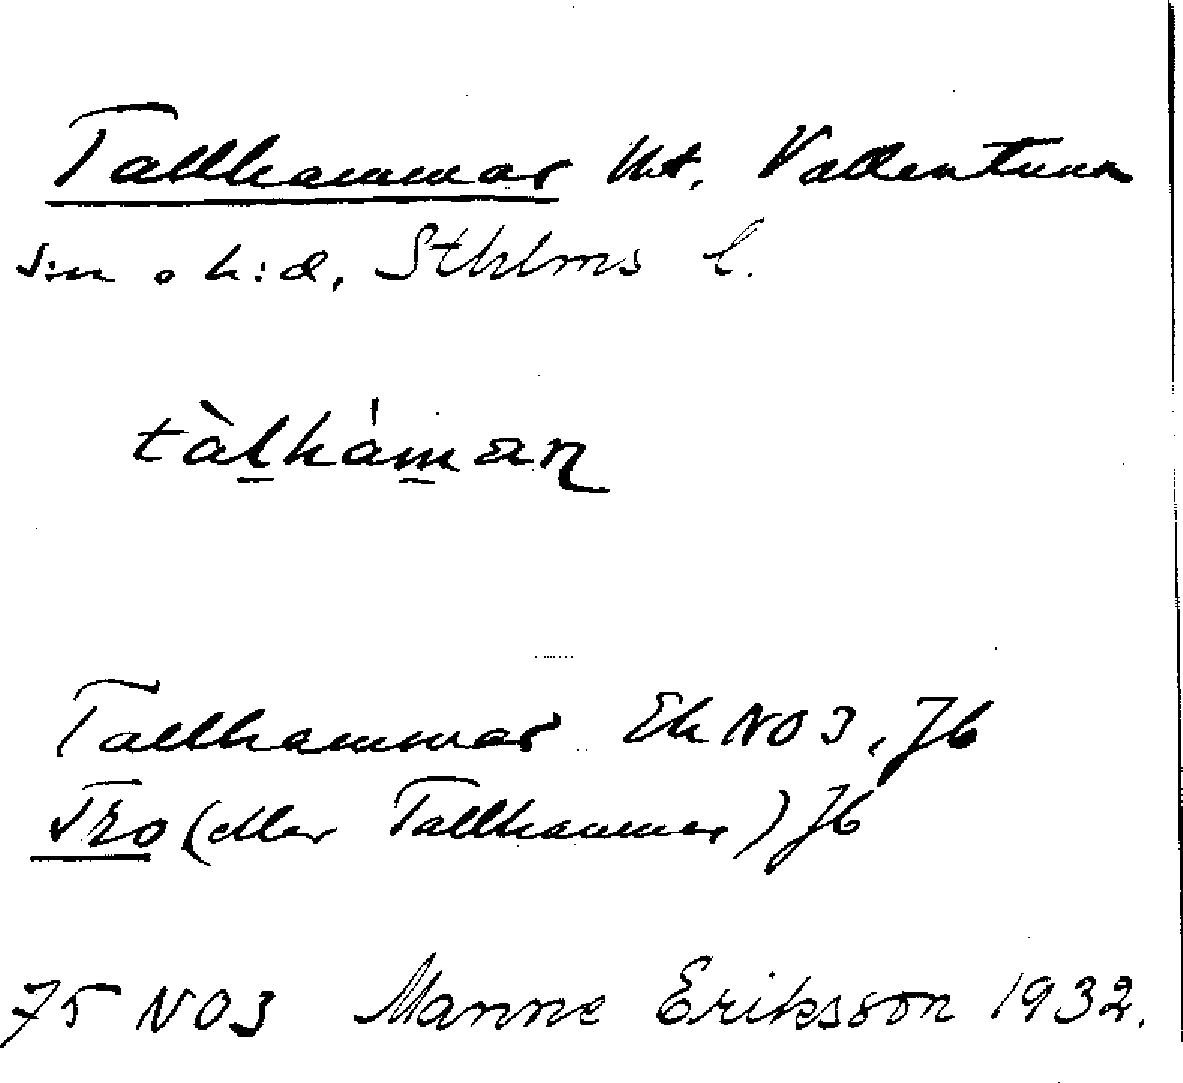 Tallhammar Ut. Vallentuna
s:n o h:d, Sthlms l.
tàl̲hám̲aɳ
Tallhammar Ek NO3, Jb
Tro (eller Tallhammar) Jb
75 NO3 Manne Eriksson 1932.